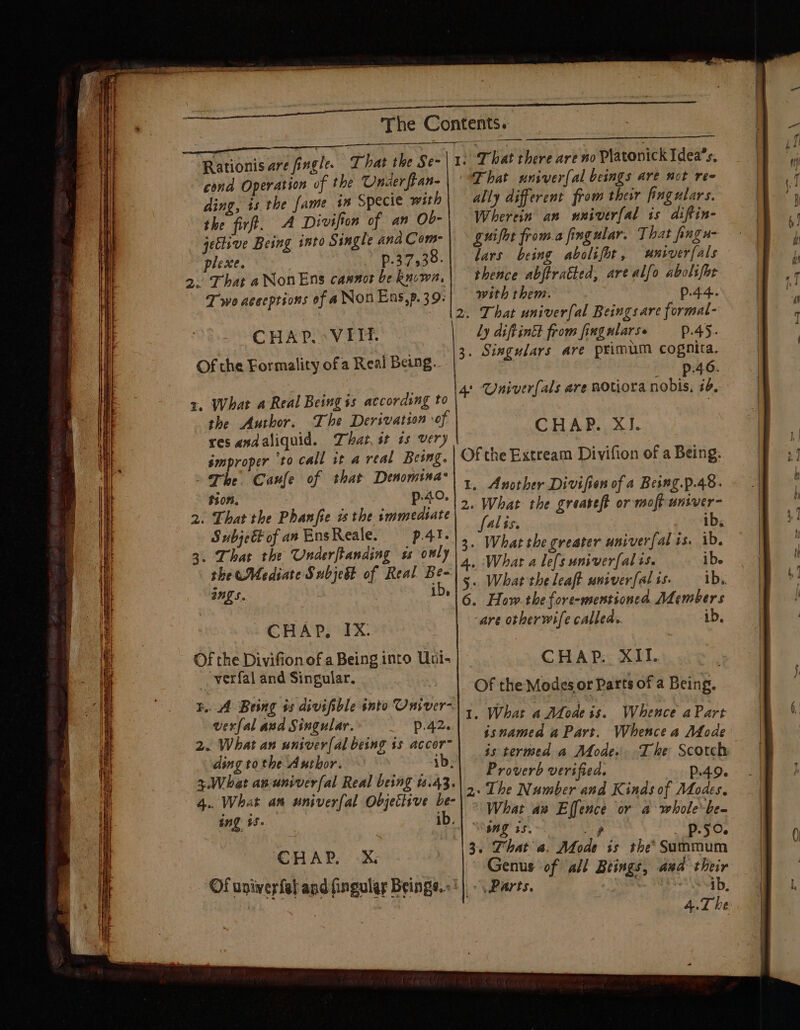 The Contents.
Rationis are ſingle. That the Se-
cond Operation of the Underſtan-
ding, is the ſame in Specie with
the firſt. A Diviſion of an Ob-
jective Being into Single and Com-
plexe. p.37,38.
2. That a Non Ens cannot be known,
Two acceptions of a Non Ens, p.39.
CHAP. VIII.
Of the Formality of a Real Being.
1. What a Real Being is according to
the Author. The Derivation of
res and aliquid. That it is very
improper to call it a real Being.
The Cauſe of that Denomina-
tion. p.40.
2. That the Phanſie is the immediate
Subject of an Ens Reale. p.41.
3. That the Underſtanding is only
the Mediate Subject of Real Be-
ings. ib.
CHAP. IX.
Of the Diviſion of a Being into Uni-
verſal and Singular.
1. A Being is diviſible into Univer-
verſal and Singular. p.42.
2. What an univerſal being is accor-
ding to the Author. ib.
3. What an univerſal Real being is. 43.
4. What an univerſal Objective be-
ing is. ib.
CHAP. X.
Of univerſal and ſingular Beings.
1. That there are no Platonick Idea's.
That univerſal beings are not re-
ally different from their ſingulars.
Wherein an univerſal is diſtin-
guiſht from a ſingular. That ſingu-
lars being aboliſht, univerſals
thence abſtracted, are alſo aboliſht
with them. p.44.
2. That univerſal Beings are formal-
ly diſtinct from ſingulars. p.45.
3. Singulars are primum cognita.
p.46.
4. Univerſals are notiora nobis, ib.
CHAP. XI.
Of the Extream Diviſion of a Being.
1. Another Diviſion of a Being. p.48.
2. What the greateſt or moſt univer-
ſal is. ib.
3. What the greater univerſal is. ib.
4. What a leſs univerſal is. ib.
5. What the leaſt univerſal is. ib.
6. How the fore-mentioned Members
are otherwiſe called. ib.
CHAP. XII.
Of the Modes or Parts of a Being.
1. What a Mode is. Whence a Part
is named a Part. Whence a Mode
is termed a Mode. The Scotch
Proverb verified. p.49.
2. The Number and Kinds of Modes.
What an Eſſence or a whole be-
ing is. p.50.
3. That a Mode is the Summum
Genus of all Beings, and their
Parts. ib.
4. The